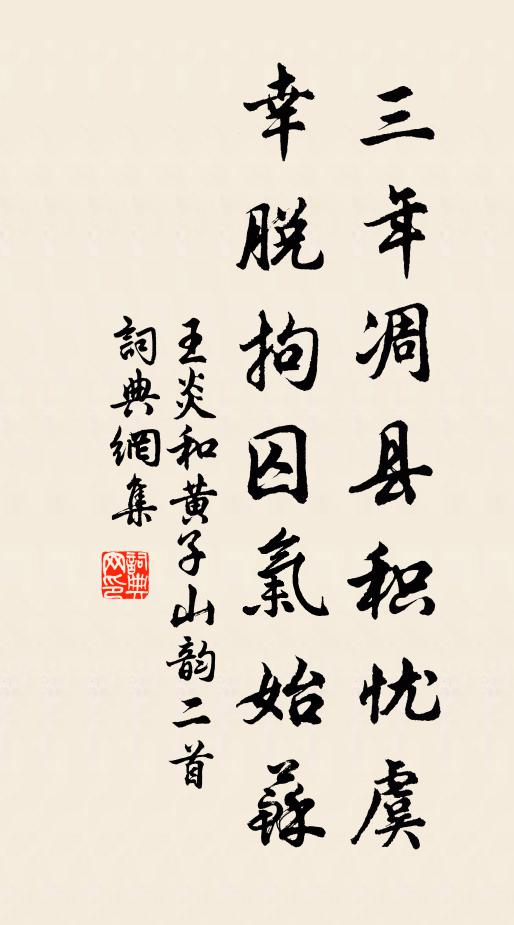 三年凋县积忧虞
幸脱拘囚氣始蘇
王炎和黄子山韵二首
詞典網集
詞典网印